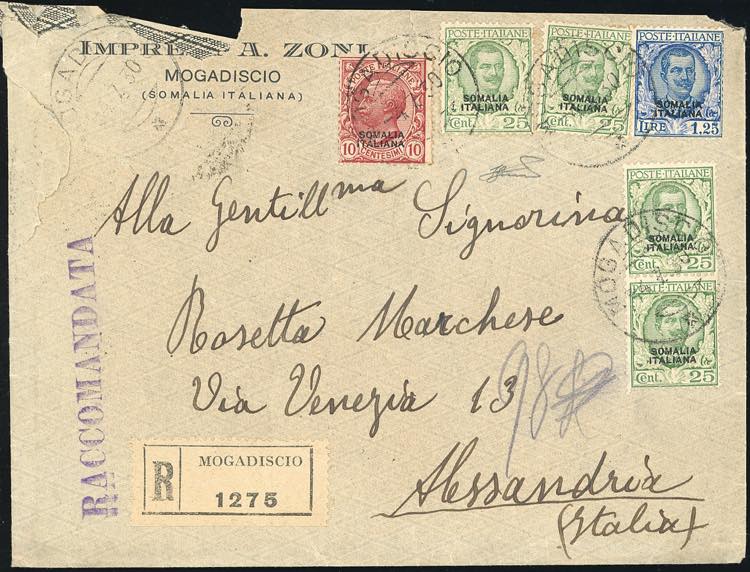 IMPRESA A. ZONI
MOGADISCIO
(SOMALIA ITALIANA)
POSTE ITALIANE
SOMALIA
ITALIANA
10 CENTESIMI 10
POSTE·ITALIANE
SOMALIA
ITALIANA
Cent. 25
POSTE·ITALIANE
SOMALIA
ITALIANA
Cent. 25
POSTE·ITALIANE
SOMALIA
ITALIANA
LIRE 1.25
MOGADISCIO
MOGADISCIO
MOGADISCIO
POSTE·ITALIANE
SOMALIA
ITALIANA
Cent. 25
MOGADISCIO
POSTE·ITALIANE
SOMALIA
ITALIANA
Cent. 25
Alla Gentillma Signorina
Rosetta Marchese
Via Venezia 13
98
Alessandria
(Italia)
RACCOMANDATA
R
MOGADISCIO
1275